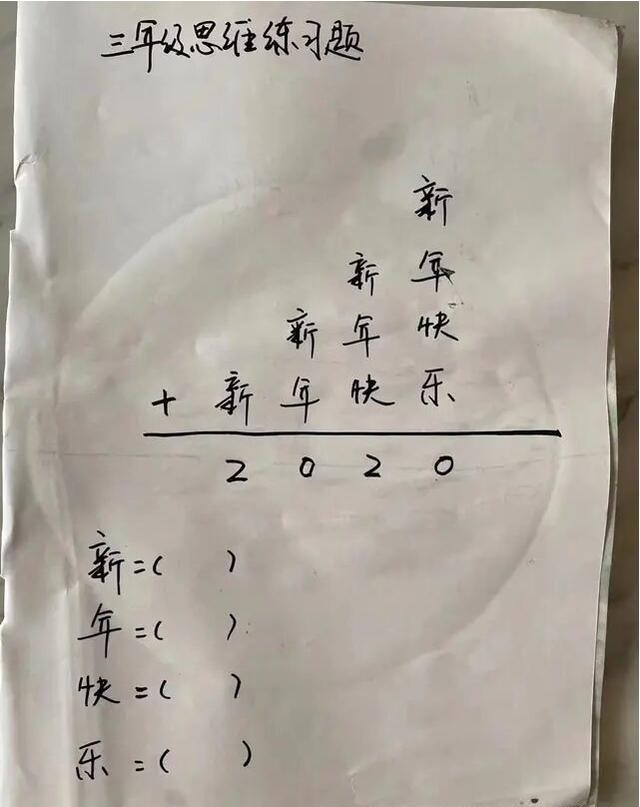 三年级思维练习题
新
新 年
新 年 快
+ 新 年 快 乐
2 0 2 0
新=( )
年=( )
快=( )
乐=( )